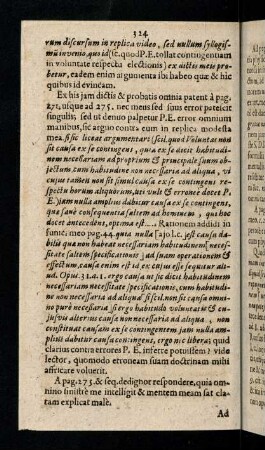 324
rum discursum in replica video, sed nullum syllogis-
mũ invenio, quo id [sc. quod P. E. tollat contingentiam
in voluntate respectu electionis] ex dictis meis pro-
betur, eadem enim argumenta ibi habeo quæ & hic
quibus id evincam.
Ex his jam dictis & probatis omnia patent à pag.
271, usque ad 275. nec mens sed ipsius error patescit
singulis, sed ut denuo palpetur P. E. error omnium
manibus, sic arguo contra eum in replica modesta
mea. sisic liceat argumentari [scil. quod Voluntas nõ
sit causa ex se contingens, quia ex se dicit habitudi-
nem necessariam ad proprium & principale suum ob-
jectum, cum habitudine non necessaria ad aliqua, vi
cujus tamen non sit simul causa ex se contingens re-
spectu horum aliquorum, uti vult & erronee docet P.
E.] jam nulla amplius dabitur causa ex se contingens,
que sanè consequentia saltem ad hominem, qui hoc
docet antecedens, optima est.... Rationem addidi in
funic: meo pag. 44. quia nulla [ajo l. c. ]est causa da-
bilis qua non habeat necessariam habitudinem [ neces-
sitate saltem specificationis ] ad suam operationem &
effectum, causa enim est id ex cujus esse sequitur ali-
ud. Opus. 31. a. 1. ergo causa ut sic dicit habitudinem
necessariam necessitate specificationis, cum habitudi-
ne non necessaria ad aliqua si scil. non sic causa omni-
no pure necessaria ] si ergo habitudo voluntatis & cu-
jusvis alterius causæ non necessaria ad aliqua, non
constituat causam ex se contingentem jam nulla am-
plius dabitur causa contingens, ergo nec libera; quid
clarius contra errores P. E. inferre potuissem? vide
lector, quomodo erroneam suam doctrinam mihi
affricare voluerit.
A pag. 275. & seq. dedignor respondere, quia om-
nino sinistrè me intelligit & mentem meam sat cla-
ram explicat malè.
Ad